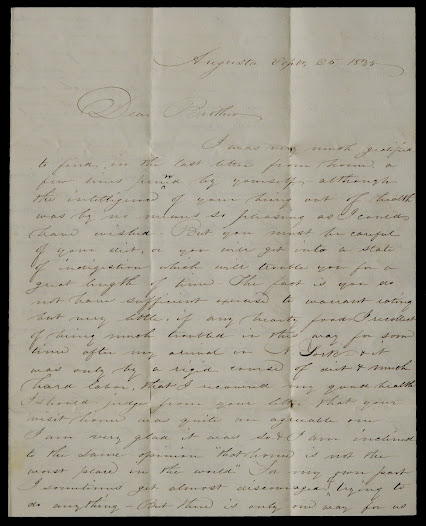 Augusta Sept. 25 1835
Dear Brother
I was very much gratified
to find, in the last letter from home a
few lines penn'd by yourself, although
the intelligence of your being out of health
was by no means so pleasing as I could
have wished. But you must be careful
of your diet, or you will get into a state
of indigestion which will trouble you for a
great length of time. The fact is you do
not have sufficient exercise to warrant eating
but very little, if any hearty food. I recollect
of being much troubled in this way for some
time after my arrival in N York & it
was only by a rigid course of diet & much
hard labor, that I recovered my good health
I should judge from your letter that your
visit home was quite an agreeable one
I am very glad it was so & I am inclined
to the same opinion "that home is not the
worst place in the world" In my own part
I sometimes get almost discouraged trying to
do anything - But there is only one way for us